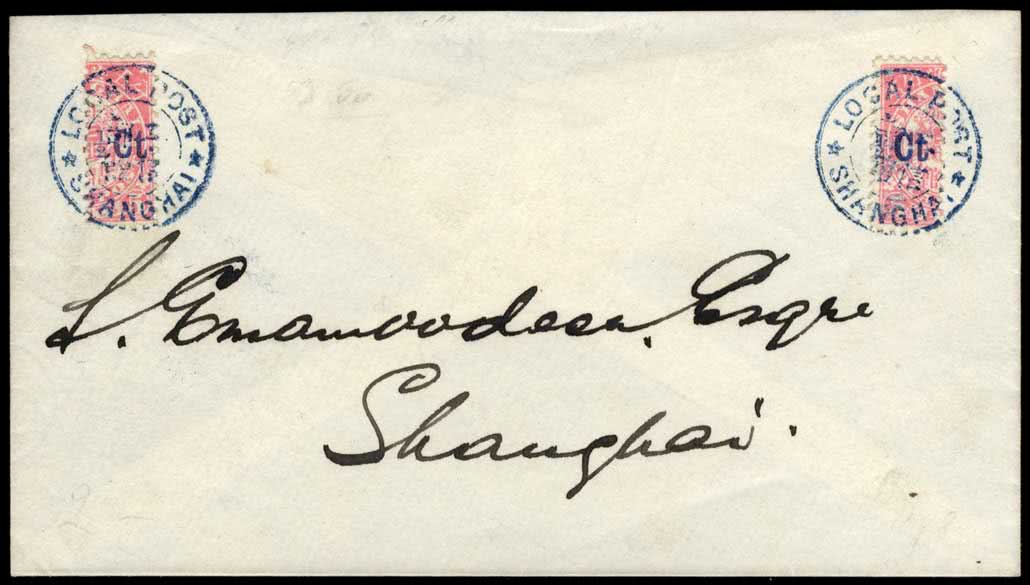 LOCAL POST
Ct.
SHANGHAI
LOCAL POST
Ct.
SHANGHAI
S. Emamoodeen, Esqre
Shanghai.